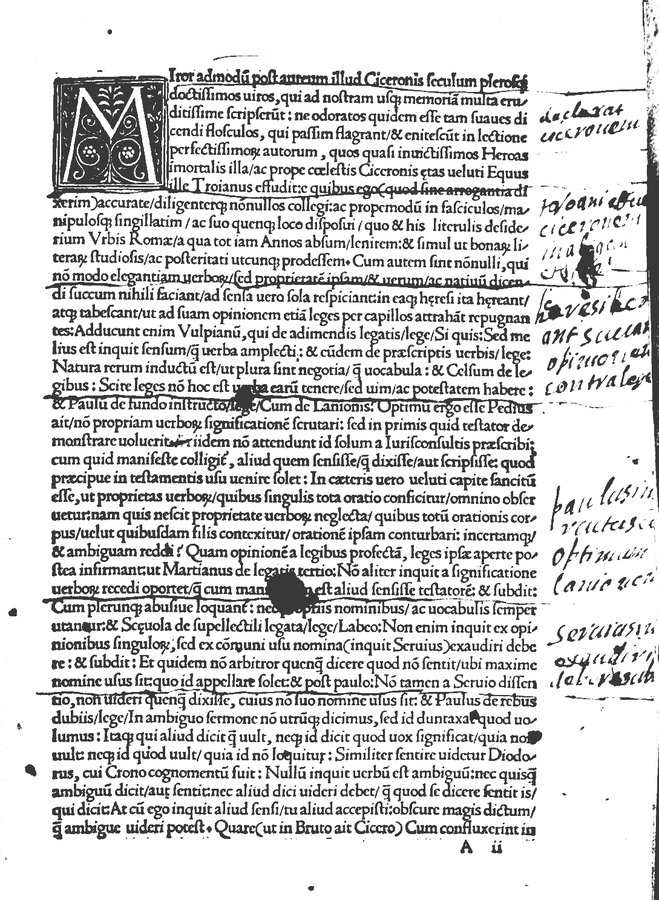 MIror admodũ post aureum illud Ciceronis seculum plerosq;
doctissimos uiros, qui ad nostram usq; memoriã multa eru⸗
ditissime scripserũt: ne odoratos quidem esse tam suaues di
cendi flosculos, qui passim flagrant/& enitescũt in lectione
perfectissimoꝝ autorum, quos quasi inuictissimos Heroas
imortalis illa/ac prope cœlestis Ciceronis ętas ueluti Equus
ille Troianus effudit:e quibus ego(quod sine arrogantia di
xerim)accurate/diligenterq; nõnullos collegi:ac propemodũ in fasciculos/ma⸗
nipulosq; singillatim / ac suo quenq; loco disposui / quo & his literulis deside⸗
rium Vrbis Romæ/a qua tot iam Annos absum/lenirem:& simul ut bonaꝝ li⸗
teraꝝ studiosis/ac posteritati utcunq; prodessem. Cum autem sint nõnulli, qui
nõ modo elegantiam uerboꝝ/sed proprietatẽ ipsam/& uerum/ac natiuũ dicen⸗
di succum nihili faciant/ad sensa uero sola respiciant:in eaq; hęresi ita hęreant/
atq; tabescant/ut ad suam opinionem etiã leges per capillos attrahãt repugnan
tes:Adducunt enim Vulpianũ, qui de adimendis legatis/lege/Si quis:Sed me
lius est inquit sensum/q̃ uerba amplecti: & eũdem de præscriptis uerbis/lege:
Natura rerum inductũ est/ut plura sint negotia/ q̃ uocabula : & Celsum de le⸗
gibus : Scire leges nõ hoc est uerba earũ tenere/sed uim/ac potestatem habere:
& Paulũ de fundo instructo/lege/Cum de Lanionis: Optimũ ergo esse Pedius
ait/nõ propriam uerboꝝ significationẽ scrutari: sed in primis quid testator de⸗
monstrare uoluerit iidem nõ attendunt id solum a Iurisconsultis præscribi;
cum quid manifeste colligit̃, aliud quem sensisse/q̃ dixisse/aut scripsisse: quod
præcipue in testamentis usu uenire solet : In cæteris uero ueluti capite sancitũ
esse, ut proprietas uerboꝝ/quibus singulis tota oratio conficitur/omnino obser
uetur:nam quis nescit proprietate uerboꝝ neglecta/ quibus totũ orationis cor⸗
pus/uelut quibusdam filis contexitur/ orationẽ ipsam conturbari: incertamq;/
& ambiguam reddi? Quam opinionẽ a legibus profectã, leges ipsæ aperte po⸗
stea infirmant:ut Martianus de legatis tertio:Nõ aliter inquit a significatione
uerboꝝ recedi oportet/q̃ cum est aliud sensisse testatorẽ: & subdit:
Cum plerunq; abusiue loquant̃: nominibus/ ac uocabulis semper
utantur:& Scęuola de supellectili legata/lege/ Labeo: Non enim inquit ex opi⸗
nionibus singuloꝝ, sed ex cõmuni usu nomina(inquit Seruius)exaudiri debe
re: & subdit : Et quidem nõ arbitror quenq̃ dicere quod nõ sentit/ubi maxime
nomine usus sit:quo id appellare solet:& post paulo:Nõ tamen a Seruio dissen
tio, non uideri quenq̃ dixisse, cuius nõ suo nomine usus sit: & Paulus de rebus
dubiis/lege/In ambiguo sermone nõ utrũq; dicimus, sed id duntaxat quod uo⸗
lumus : Itaq; qui aliud dicit q̃ uult, neq; id dicit quod uox significat/quia nõ
uult: neq; id quod uult/ quia id nõ loquitur : Similiter sentire uidetur Diodo⸗
rus, cui Crono cognomentũ fuit : Nullũ inquit uerbũ est ambiguũ:nec quisq̃
ambiguũ dicit/aut sentit:nec aliud dici uideri debet/ q̃ quod se dicere sentit is/
qui dicit:At cũ ego inquit aliud sensi/tu aliud accepisti:obscure magis dictum/
q̃ ambigue uideri potest. Quare(ut in Bruto ait Cicero) Cum confluxerint in
A ii
declarat
ciceronem
ciceronem
contra
optimum